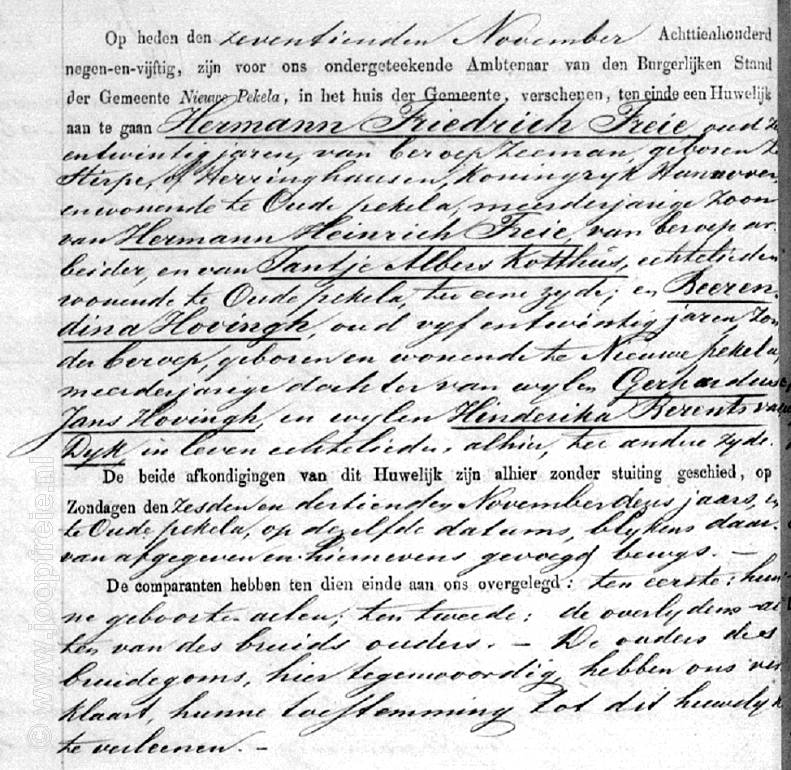 Op heden den zeventienden November Achttienhonderd
negen-en-vijftig, zijn voor ons ondergeteekende Ambtenaar van den Burgerlijken Stand
der Gemeente Nieuwe Pekela, in het huis der Gemeente, verschenen, ten einde een Huwelijk
aan te gaan Hermann Friedrich Freie oud
entwintig jaren, van beroep Zeeman, geboren te
Sterpe, of Herringhausen, Koningryk Hannover,
en wonende te Oude pekela, meerderjarige zoon
van Hermann Heinrich Freie, van beroep ar-
beider, en van Tantje Albers Kotthus, echtelieden
wonende te Oude pekela, ter eene zyde; en Beeren-
dina Hovingh oud vyf entwintig jaren, zon
der beroep, geboren en wonende te Nieuwe pekela,
meerderjarige dochter van wylen Gerhardus
Jans Hovingh, en wylen Hinderika Berents van
Dyk in leven echtelieden alhier, ter andere zyde.
De beide afkondigingen van dit Huwelijk zijn alhier zonder stuiting geschied, op
Zondagen den Zesden en dertienden November dezes jaars, en
te Oude pekela, op dezelfde datums, blykens daar-
van afgegeven en hiernevens gevoegd bewys. —
De comparanten hebben ten dien einde aan ons overgelegd: ten eerste: hun-
ne geboorte-acten; ten tweede: de overlydens-ac
ten van des bruids ouders. — De ouders des
bruidegoms, hier tegenwoordig, hebben ons ver
klaart, hunne toestemming tot dit huwelyk
te verleenen. —
© www.joopfreie.nl